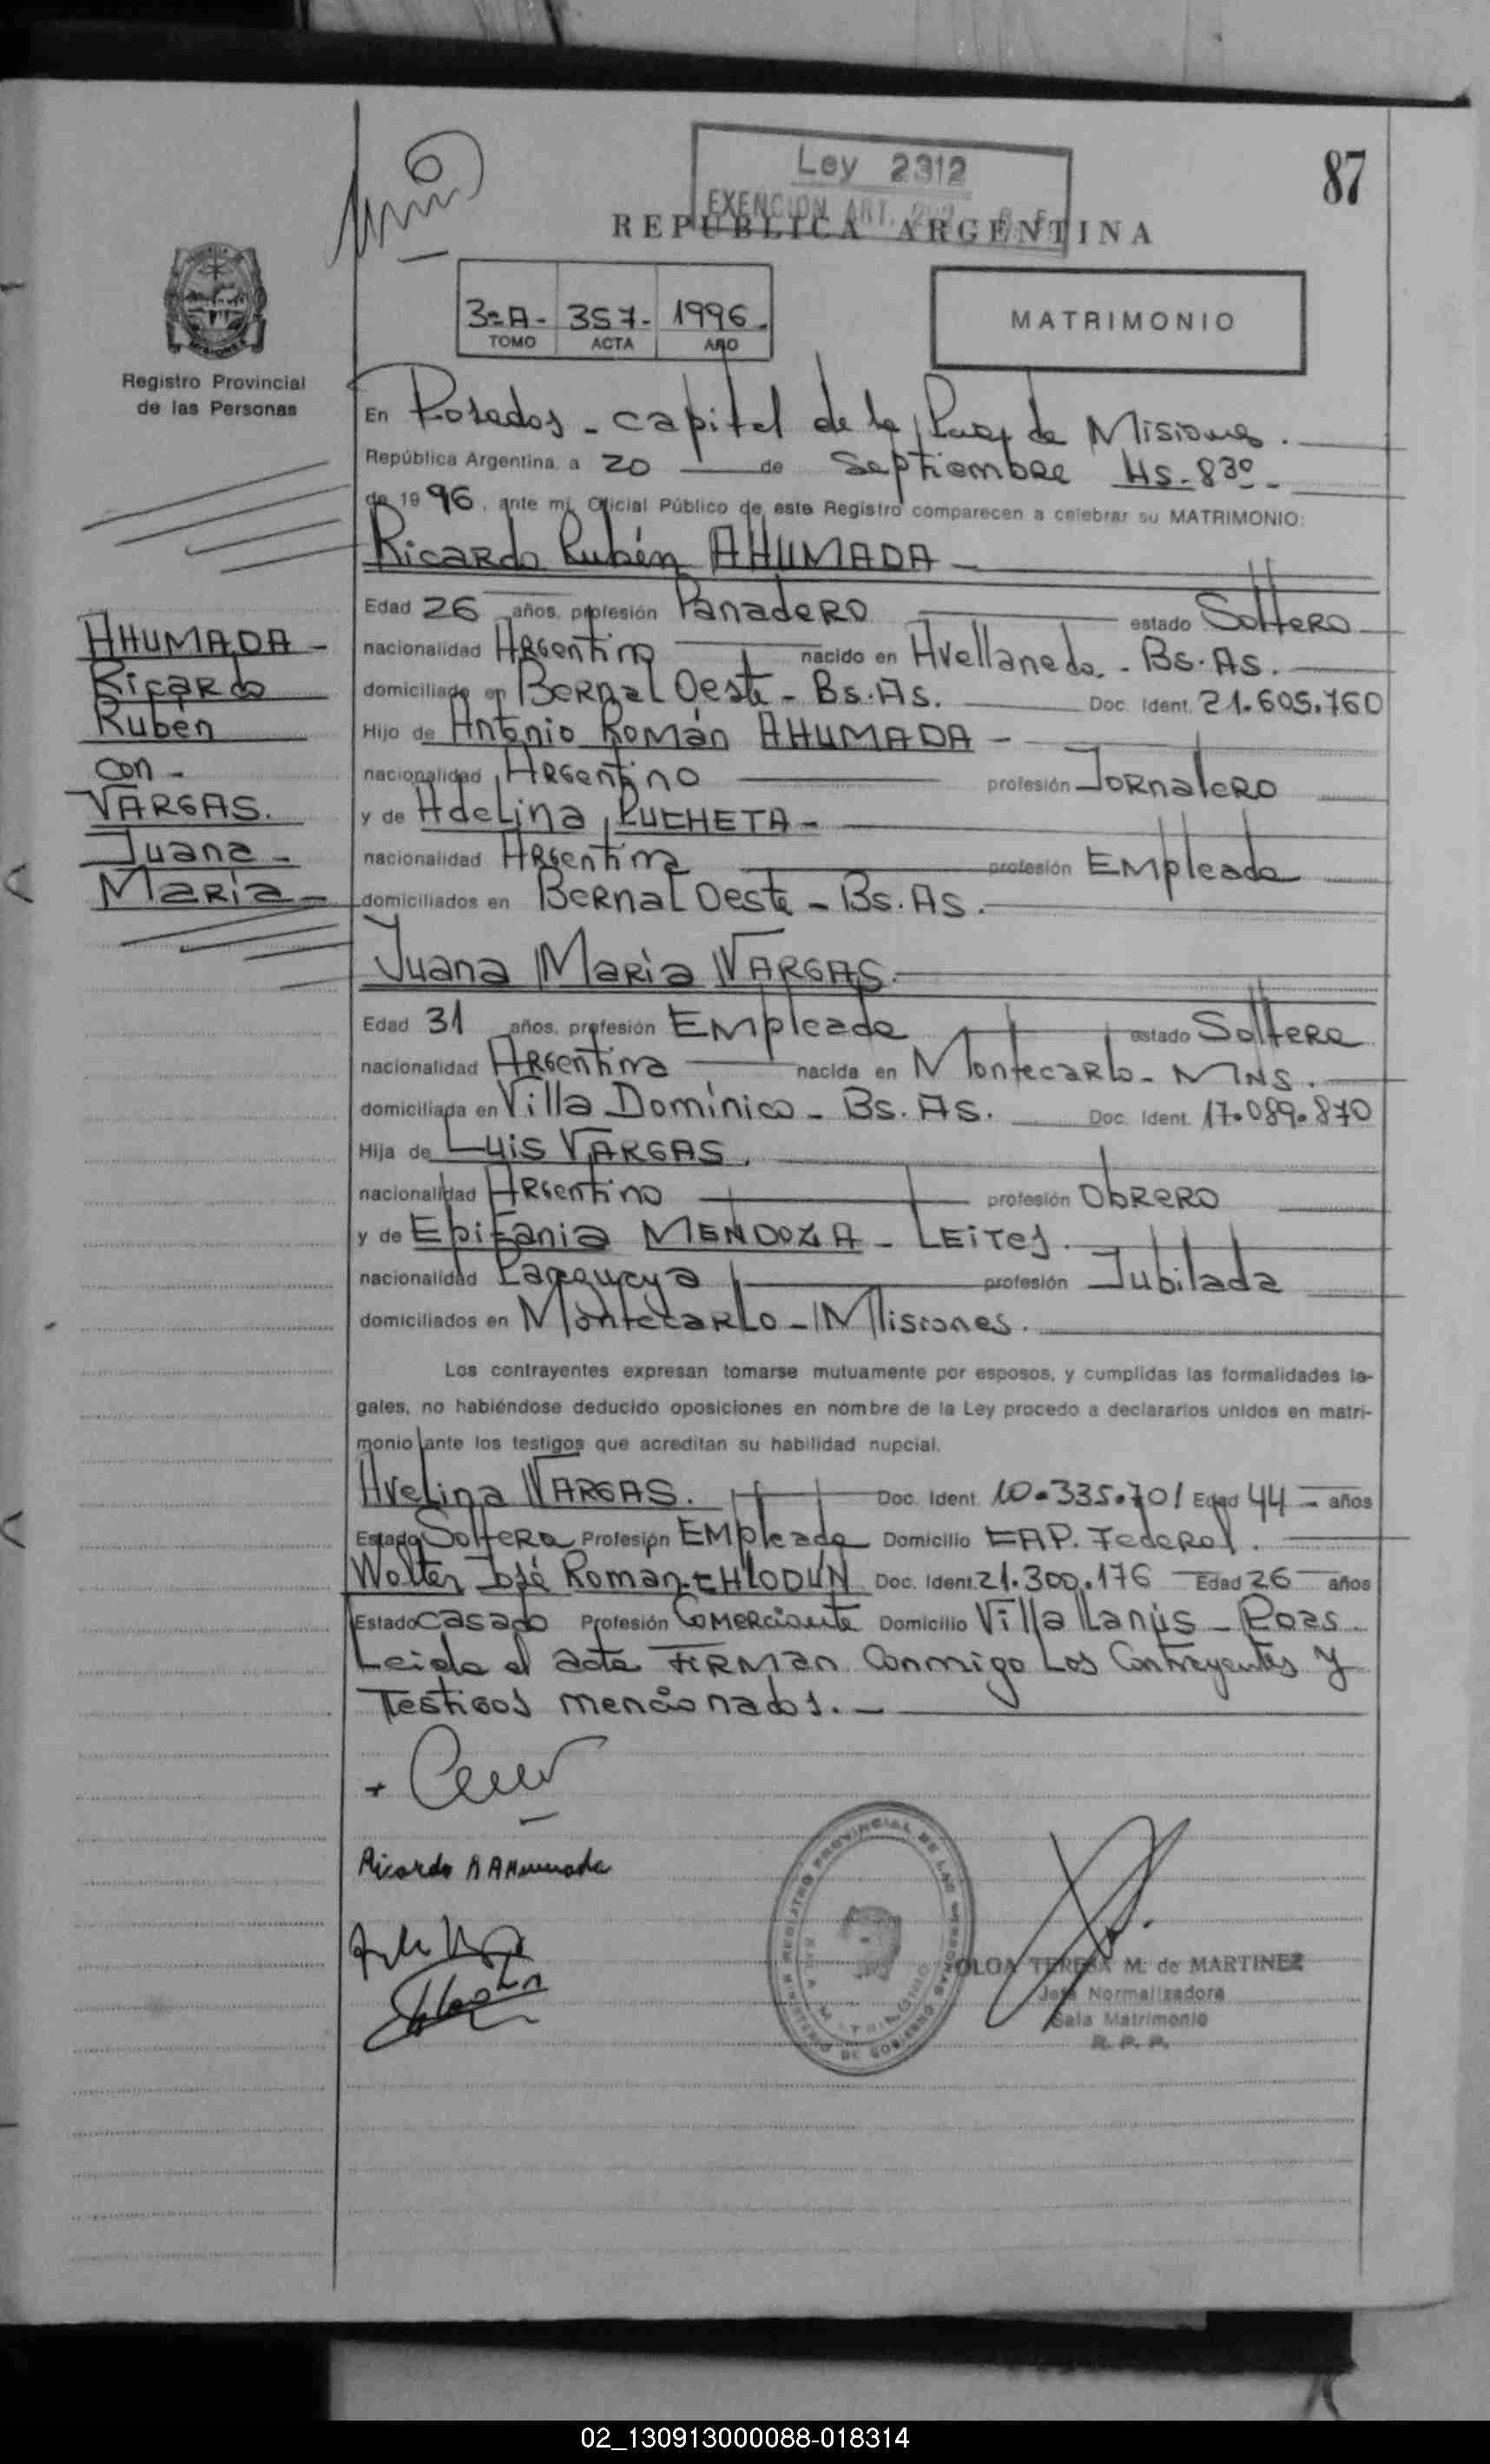 87
Ley 2312
EXENCION ART.
REPUBLICA ARGENTINA
3º-A- 357- 1996-
TOMO ACTA AÑO
MATRIMONIO
Registro Provincial
de las Personas
En Posadas - capital de la de Misiones.
República Argentina, a 20 de Septiembre HS-8³⁰-
de 1996, ante mí, Oficial Público de este Registro comparecen a celebrar su MATRIMONIO:
Ricardo Rubén AHUMADA -
Edad 26 años, profesión Panadero estado Soltero
AHUMADA -
Ricardo
Rubén
con -
VARGAS.
Juana -
María -
nacionalidad Argentina nacido en Avellaneda - Bs. As.
domiciliado en Bernal Oeste - Bs. As. Doc. Ident. 21.605.760
Hijo de Antonio Román AHUMADA -
nacionalidad Argentino profesión Jornalero
y de Adelina PUCHETA -
nacionalidad Argentina profesión Empleada
domiciliados en Bernal Oeste - Bs. As.
Juana María VARGAS.
Edad 31 años, profesión Empleada estado Soltera
nacionalidad Argentina nacida en Montecarlo - MNS.
domiciliada en Villa Domínico - Bs. As. Doc. Ident. 17.089.870
Hija de Luis VARGAS.
nacionalidad Argentino profesión Obrero
y de Epifania MENDOZA - LEITES.
nacionalidad Paraguaya profesión Jubilada
domiciliados en Montecarlo - Misiones.
Los contrayentes expresan tomarse mutuamente por esposos, y cumplidas las formalidades le-
gales, no habiéndose deducido oposiciones en nombre de la Ley procedo a declararlos unidos en matri-
monio ante los testigos que acreditan su habilidad nupcial.
Avelina VARGAS. Doc. Ident. 10.335.701 Edad 44 - años
Estado Soltera Profesión Empleada Domicilio CAP. Federal.
Walter José Roman CHLODUN Doc. Ident. 21.300.176 Edad 26 años
Estado casado Profesión Comerciante Domicilio Villa Lanús - Poas
Leida el acta FIRMAN Conmigo Los Contrayentes y
Testigos mencionados. -
Ricardo R Ahumada
REGISTRO PROVINCIAL DE LAS PERSONAS
MINISTERIO DE GOBIERNO
MATRIMONIO
OLGA TERESA M. de MARTINEZ
Jefa Normalizadora
Sala Matrimonio
R. P. P.
02_130913000088-018314